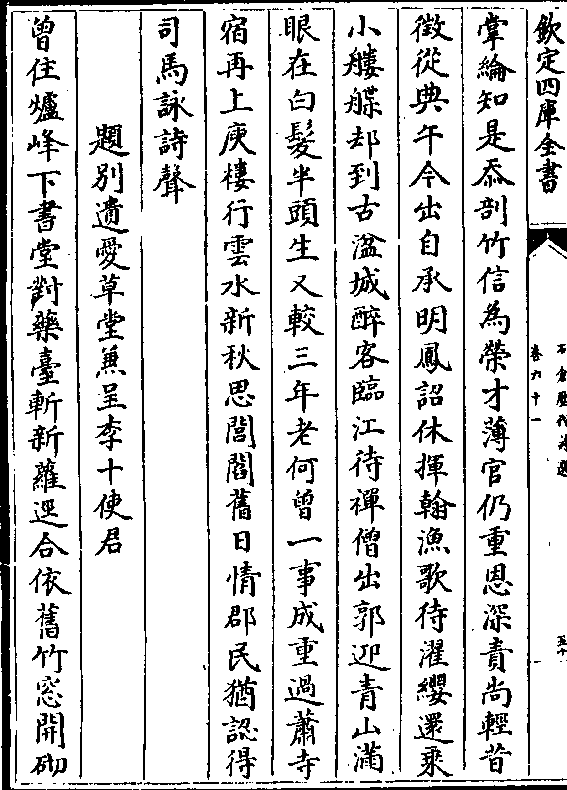 欽定四庫全書
掌綸知是忝剖竹信為榮才薄官仍重恩深責尚輕昔
徵從典午今出自承明鳳詔休揮翰漁歌待濯纓還乘
小艛艓却到古湓城醉客臨江待禪僧出郭迎青山滿
眼在白髮半頭生又較三年老何曾一事成重過蕭寺
宿再上庾樓行雲水新秋思閭閻舊日情郡民猶認得
司馬詠詩聲
題別遺愛草堂兼呈李十使君
曾住爐峰下書堂對藥臺斬新蘿逕合依舊竹窓開砌
石倉歴代詩選
卷六十一
五十一